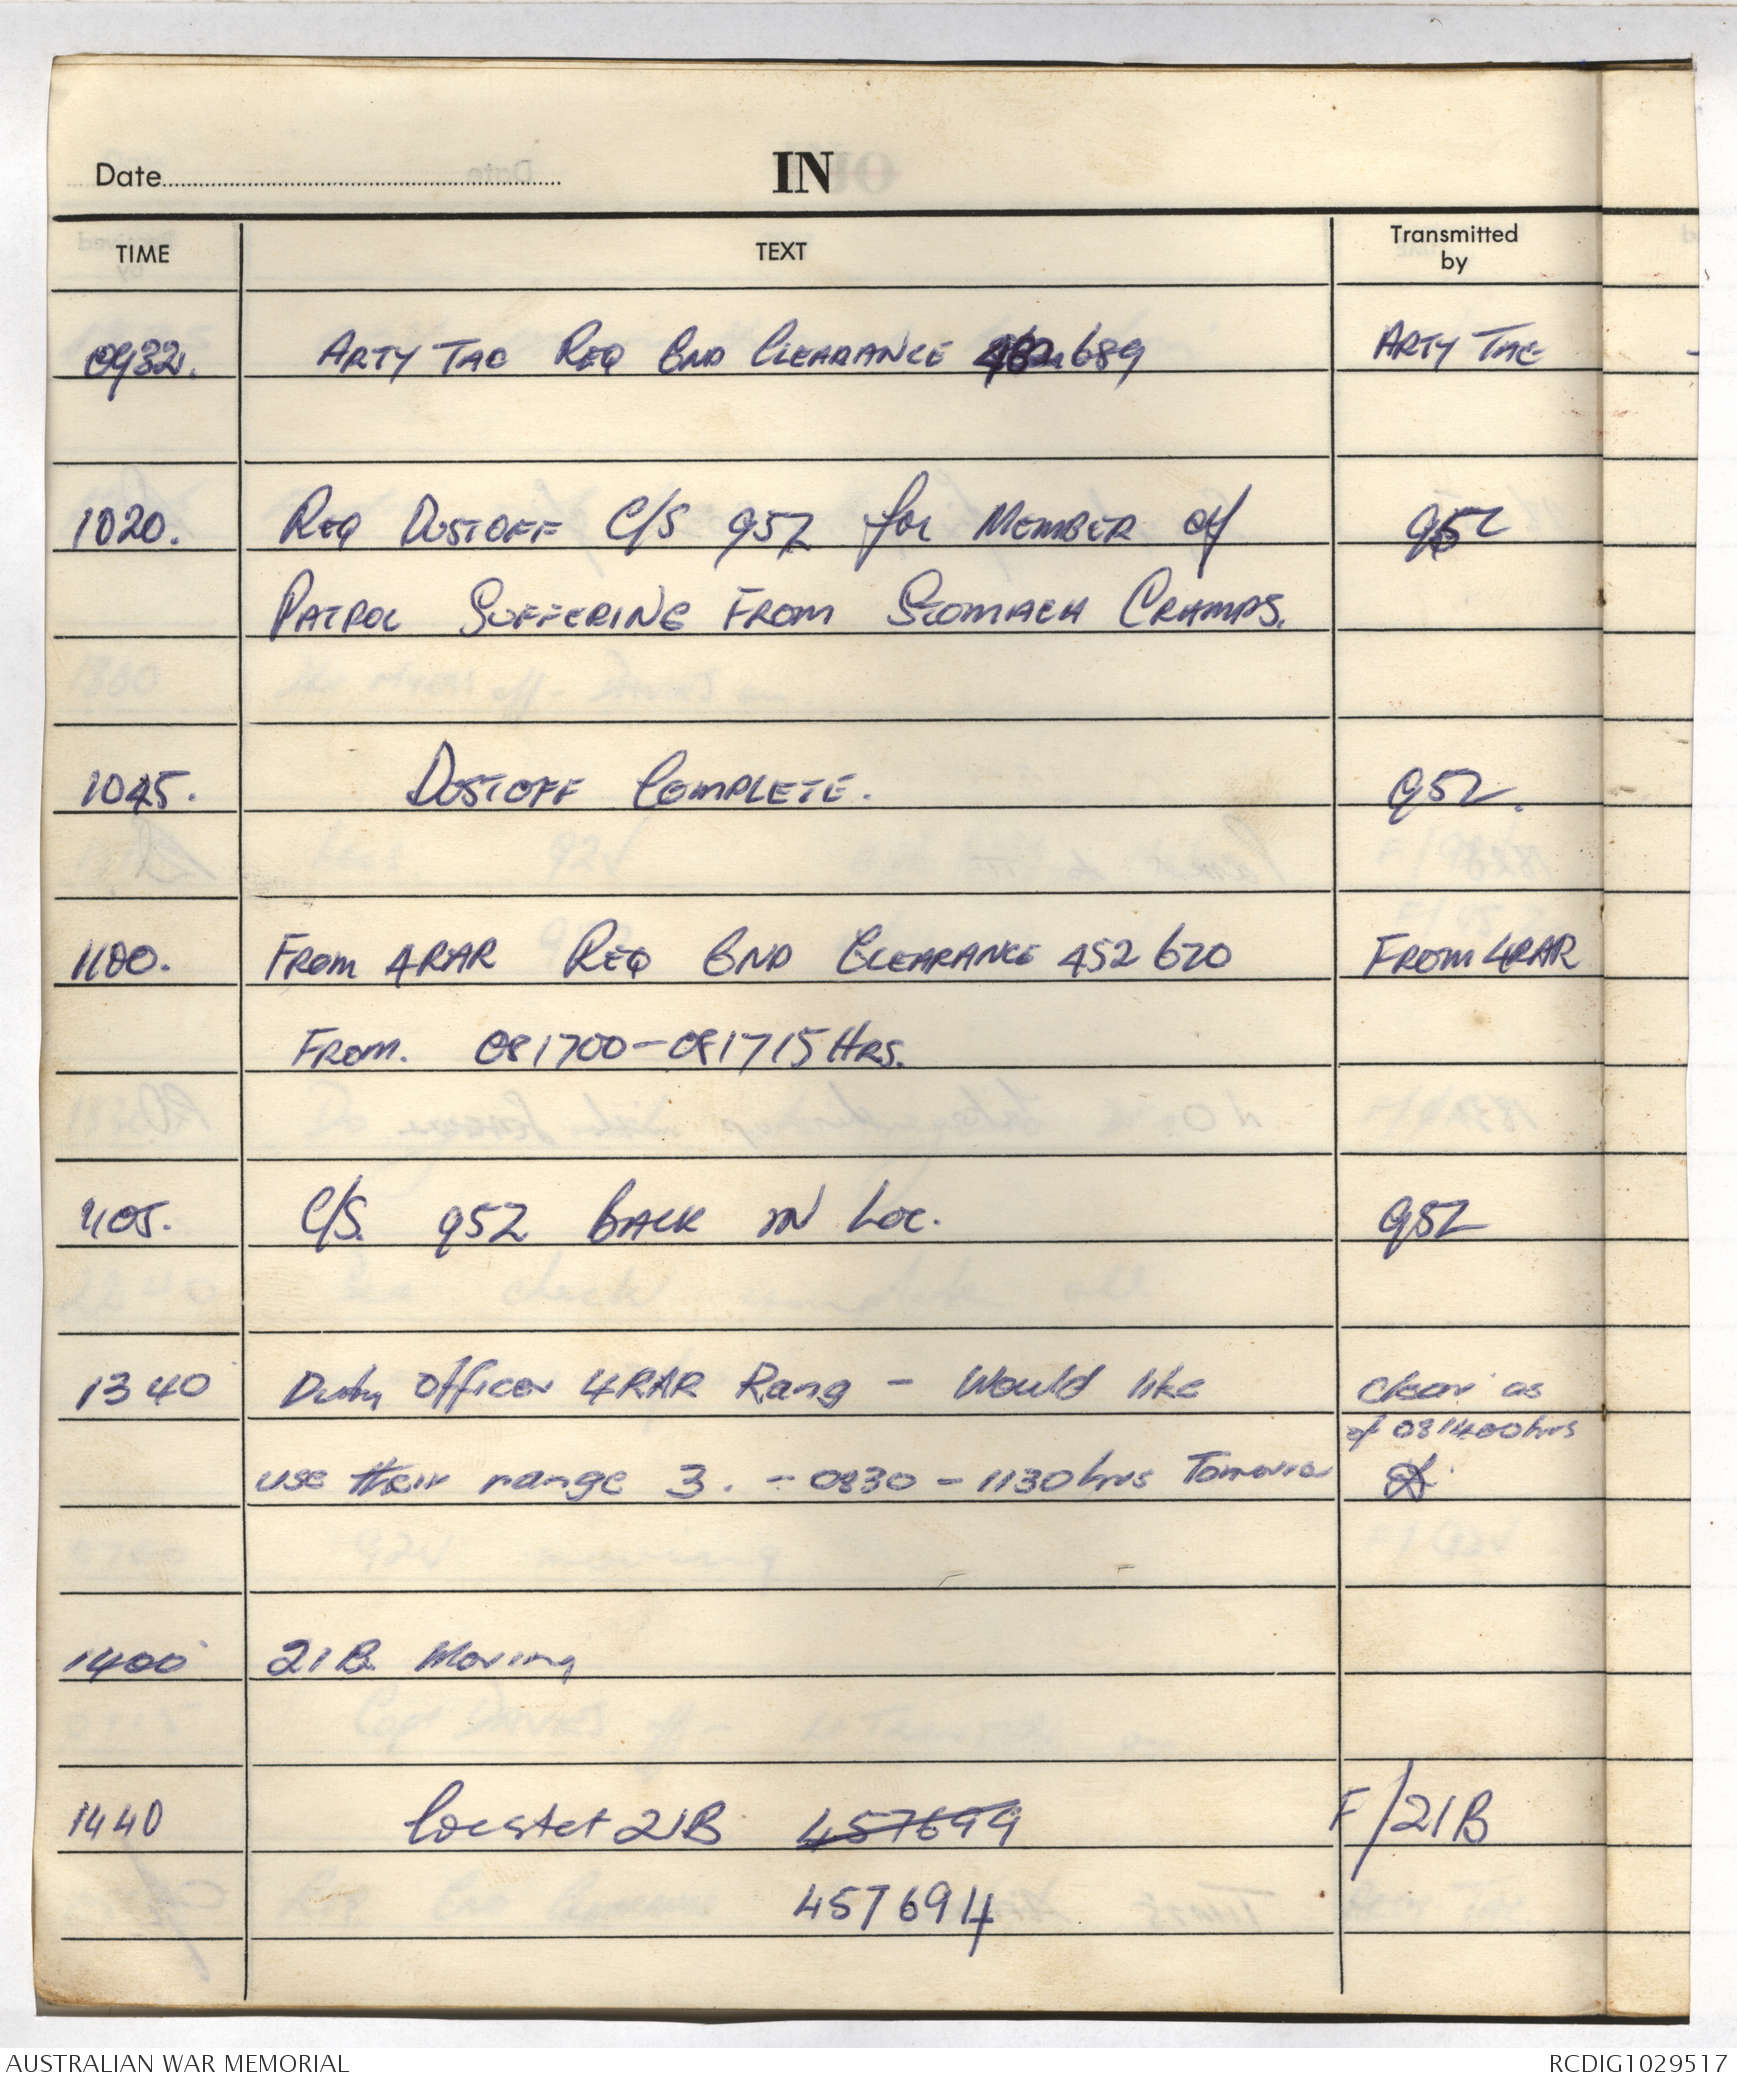 Date
IN
TIME TEXT Transmitted by
0932. ARTY TAC REQ GND CLEARANCE 689 ARTY TAC
1020. REQ DUSTOFF C/S 95Z for MEMBER of 95Z
PATROL SUFFERING FROM STOMACH CRAMPS.
1045. DUSTOFF COMPLETE. 95Z.
1100. FROM 4RAR REQ GND CLEARANCE 452 670 FROM 4RAR
FROM. 081700-081715 HRS.
1105. C/S. 95Z BACK IN LOC. 95Z
1340 Duty Officer 4RAR Rang - Would like Clear as
of 081400hrs
use their range 3. - 0830 - 1130hrs Tomorrow
1400 21B Moving
1440 Locstat 21B 457699 F/21B
457694
AUSTRALIAN WAR MEMORIAL RCDIG1029517